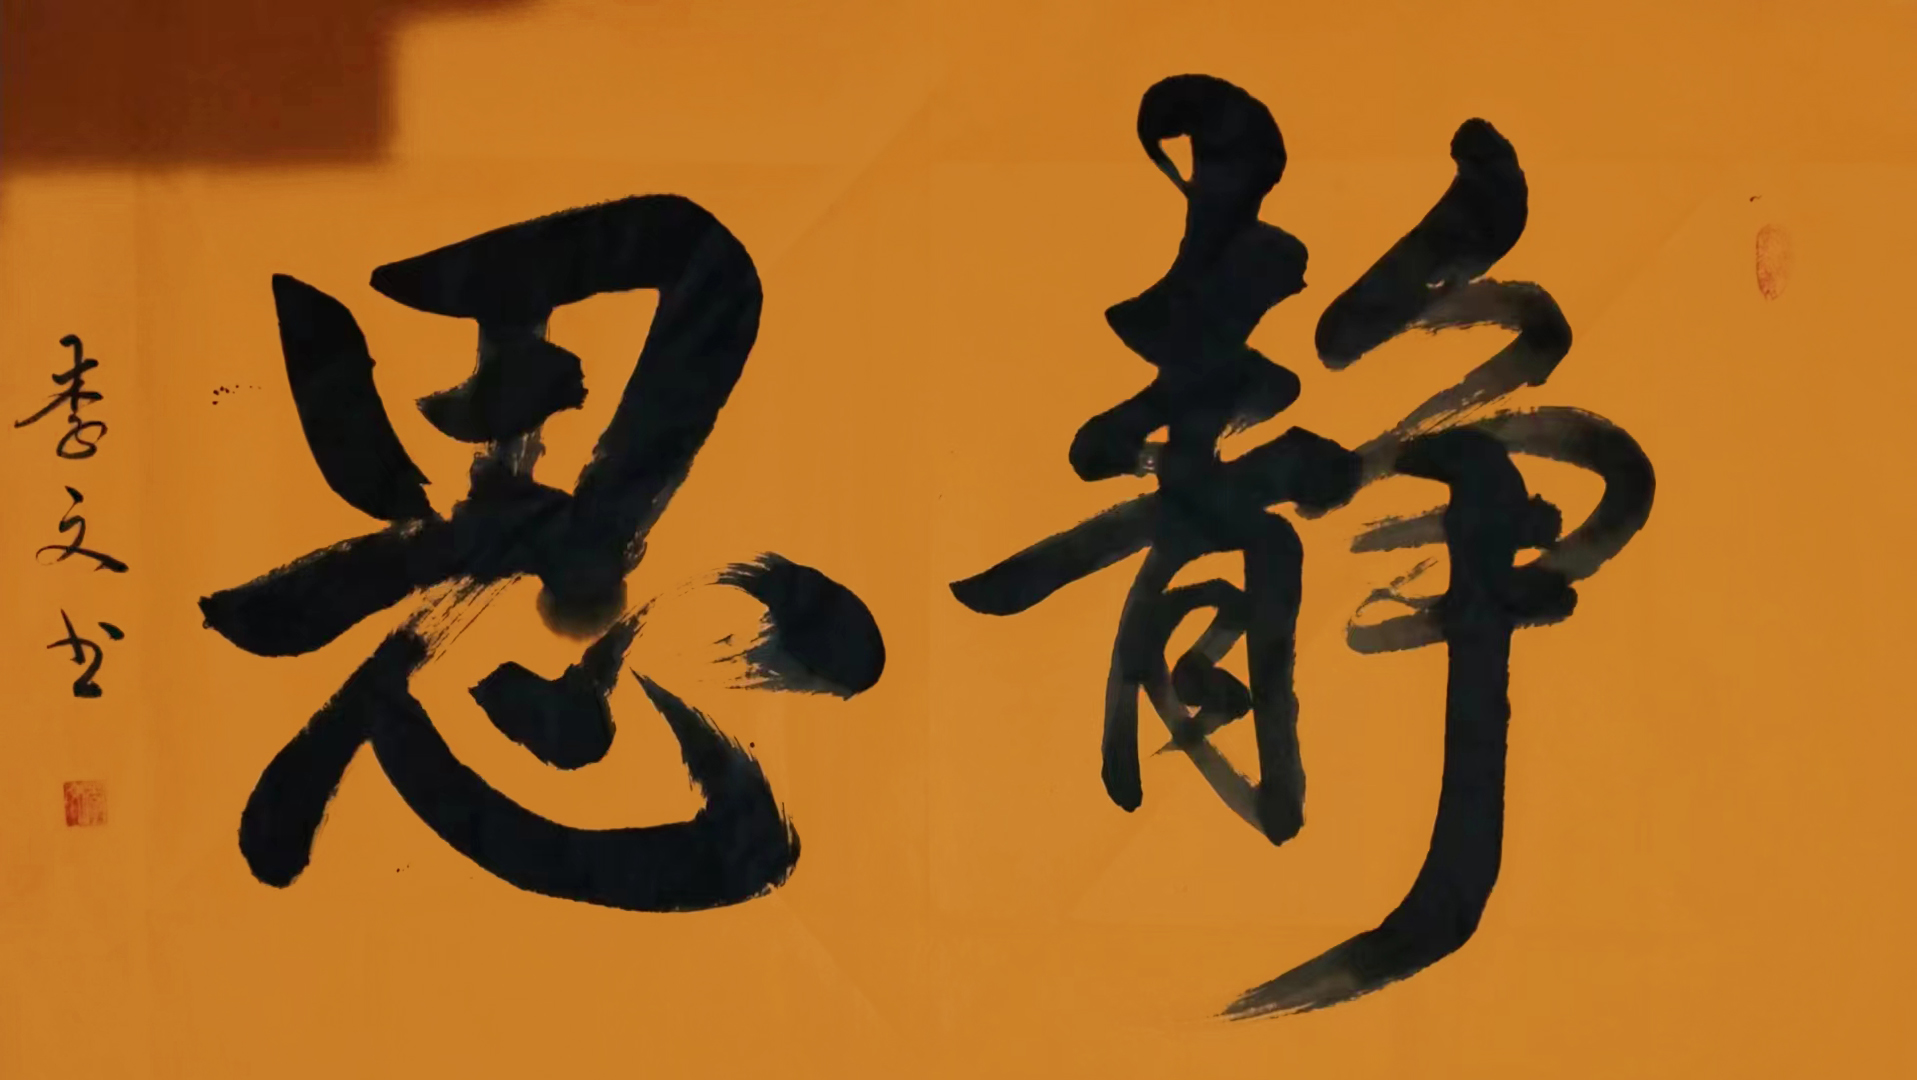 静思
李文书